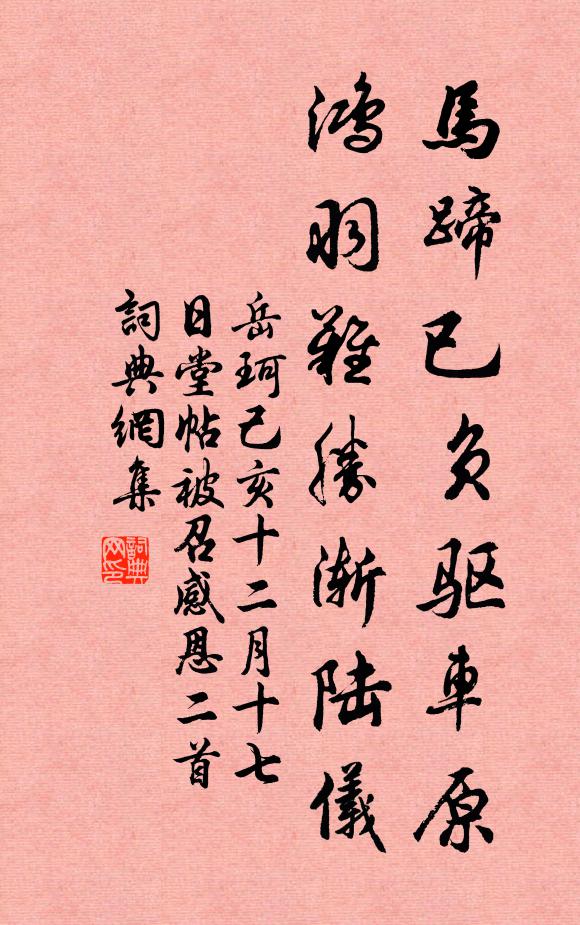 馬蹄已负驱車原
鴻羽難勝渐陆儀
岳珂己亥十二月十七
日堂帖被召感恩二首
詞典網集
詞典
网印